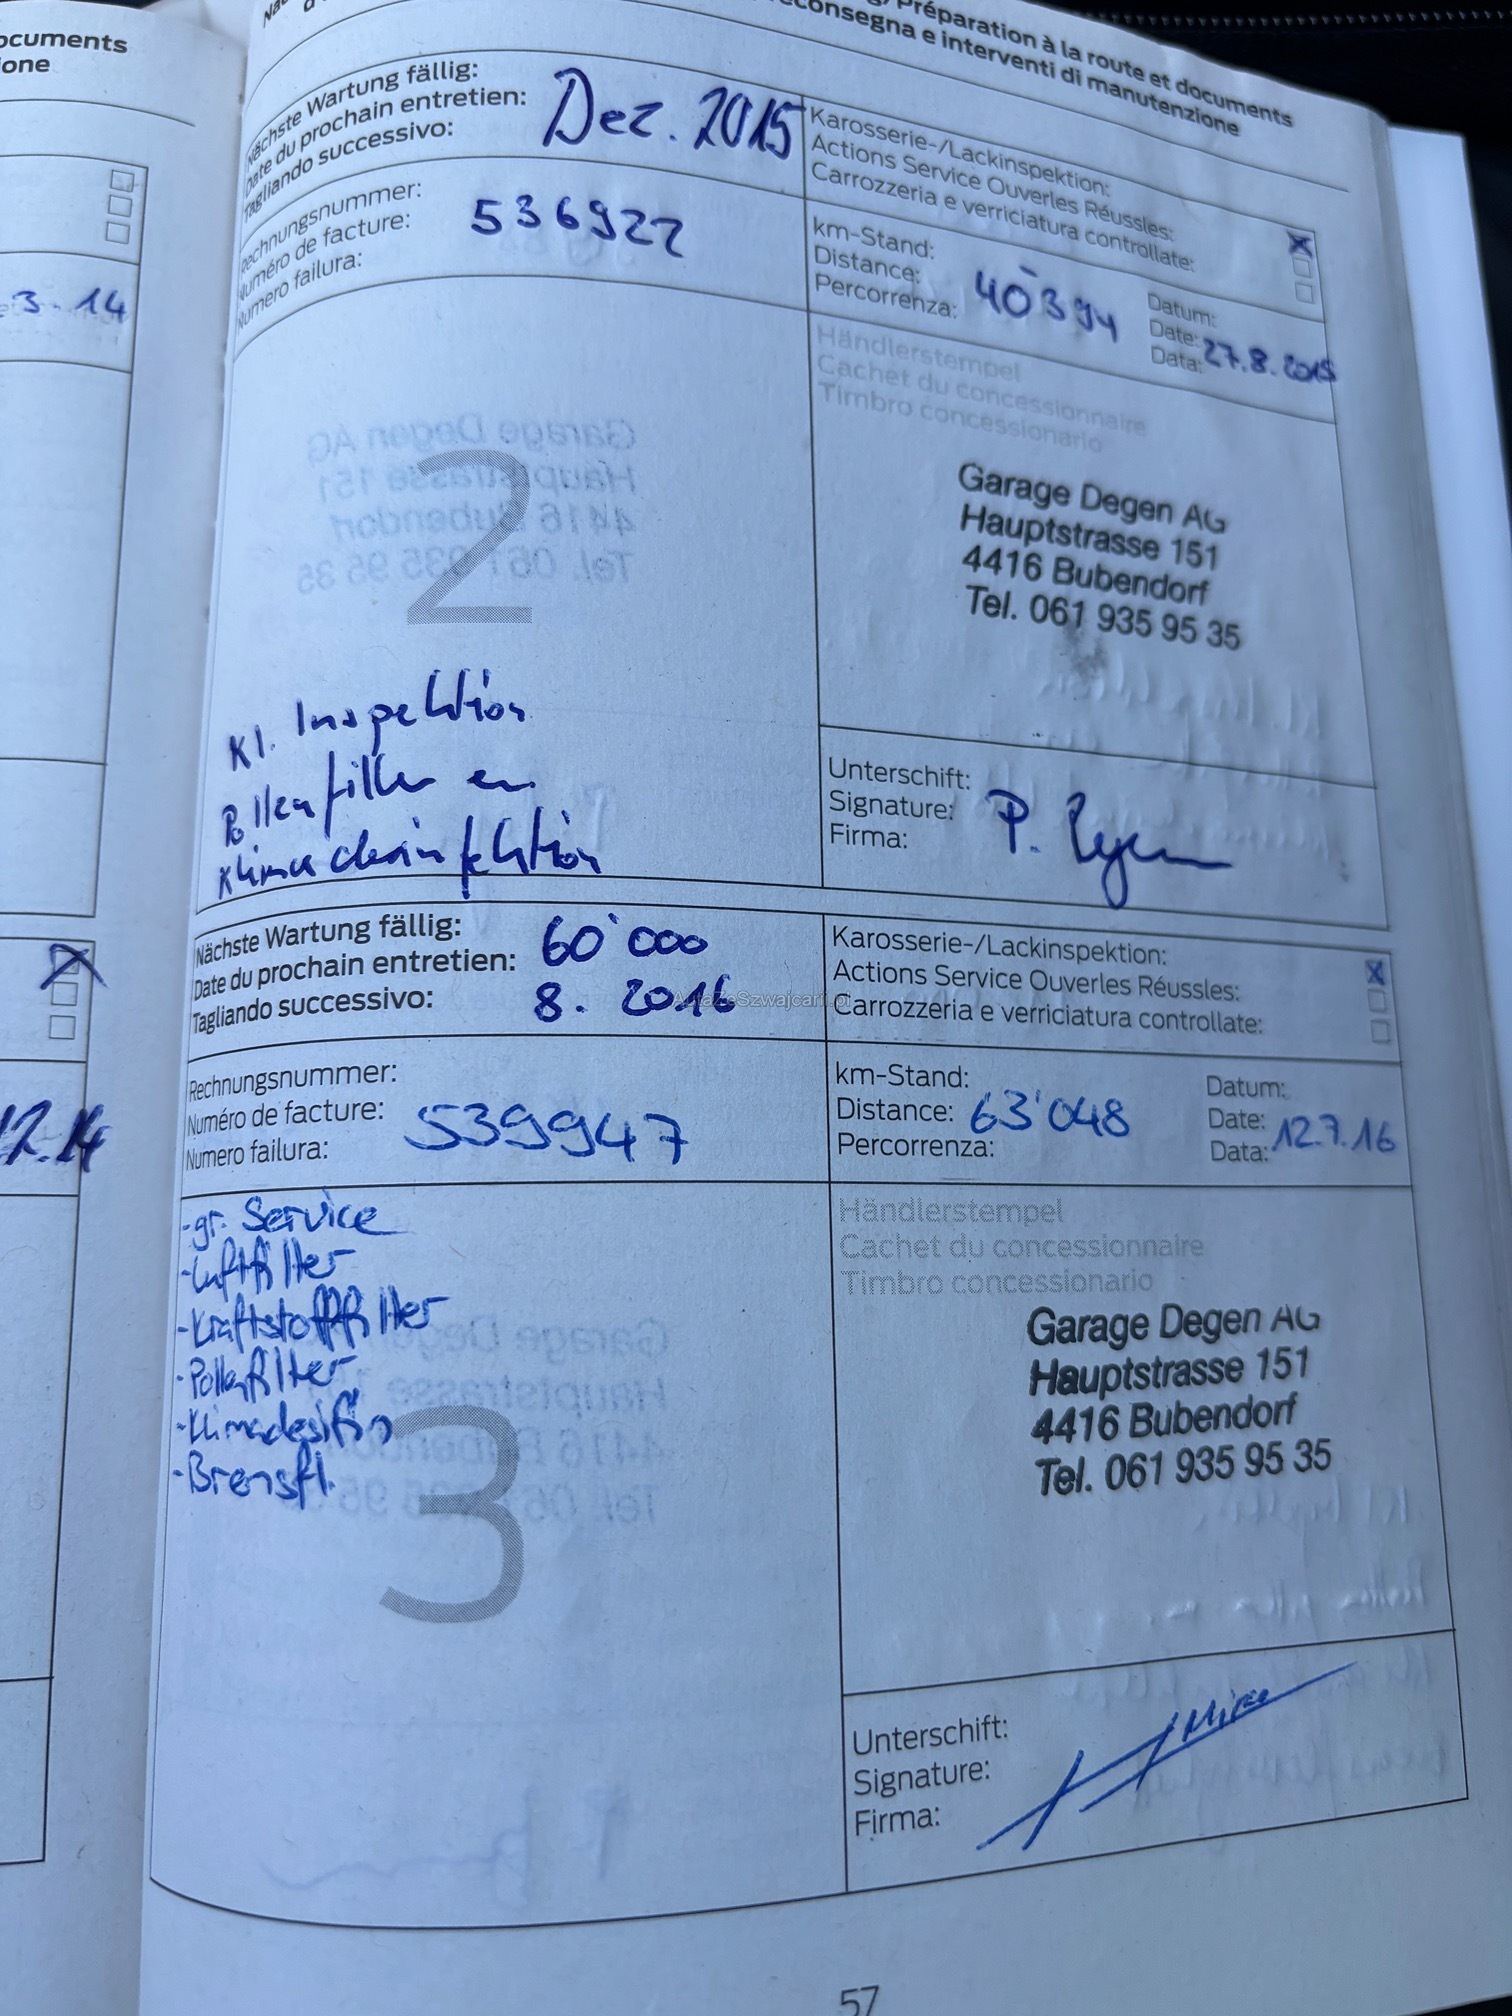 ocuments
one
3. 14
12.14
Préparation à la route et documents
econsegna e interventi di manutenzione
Nächste Wartung fällig:
Date du prochain entretien:
Tagliando successivo:
Dez. 2015
Karosserie-/Lackinspektion:
Actions Service Ouverles Réussles:
Carrozzeria e verriciatura controllate:
Rechnungsnummer:
Numéro de facture:
Numero failura:
536922
km-Stand:
Distance:
Percorrenza:
40'394
Datum:
Date:
Data:
27.8.2015
Händlerstempel
Cachet du concessionnaire
Timbro concessionario
2
Garage Degen AG
Hauptstrasse 151
4416 Bubendorf
Tel. 061 935 95 35
Kl. Inspektion
Pollenfilter
Klimadesinfektion
Unterschift:
Signature:
Firma:
P.
Nächste Wartung fällig:
Date du prochain entretien:
Tagliando successivo:
60'000
8. 2016
AutaZeSzwajcarii.pl
Karosserie-/Lackinspektion:
Actions Service Ouverles Réussles:
Carrozzeria e verriciatura controllate:
Rechnungsnummer:
Numéro de facture:
Numero failura:
539947
km-Stand:
Distance:
Percorrenza:
63'048
Datum:
Date:
Data:
12.7.16
- gr. Service
- Luftfilter
- Kraftstofffilter
- Pollenfilter
- Klimadesifin
- Bremsfl.
3
Händlerstempel
Cachet du concessionnaire
Timbro concessionario
Garage Degen AG
Hauptstrasse 151
4416 Bubendorf
Tel. 061 935 95 35
Unterschift:
Signature:
Firma:
57